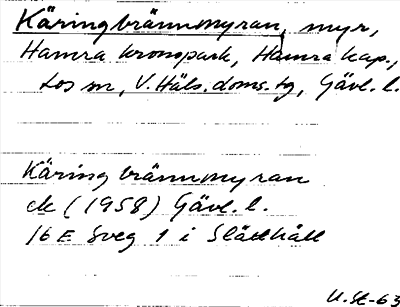 Käringbrännmyran, myr,
Hamra kronopark, Hamra kap.,
Los sn, V. Häls. doms. tg, Gävl. l.
Käringbrännmyran
ek (1958) Gävl. l.
16 E Sveg 1 i Slättkåll
U. St-63